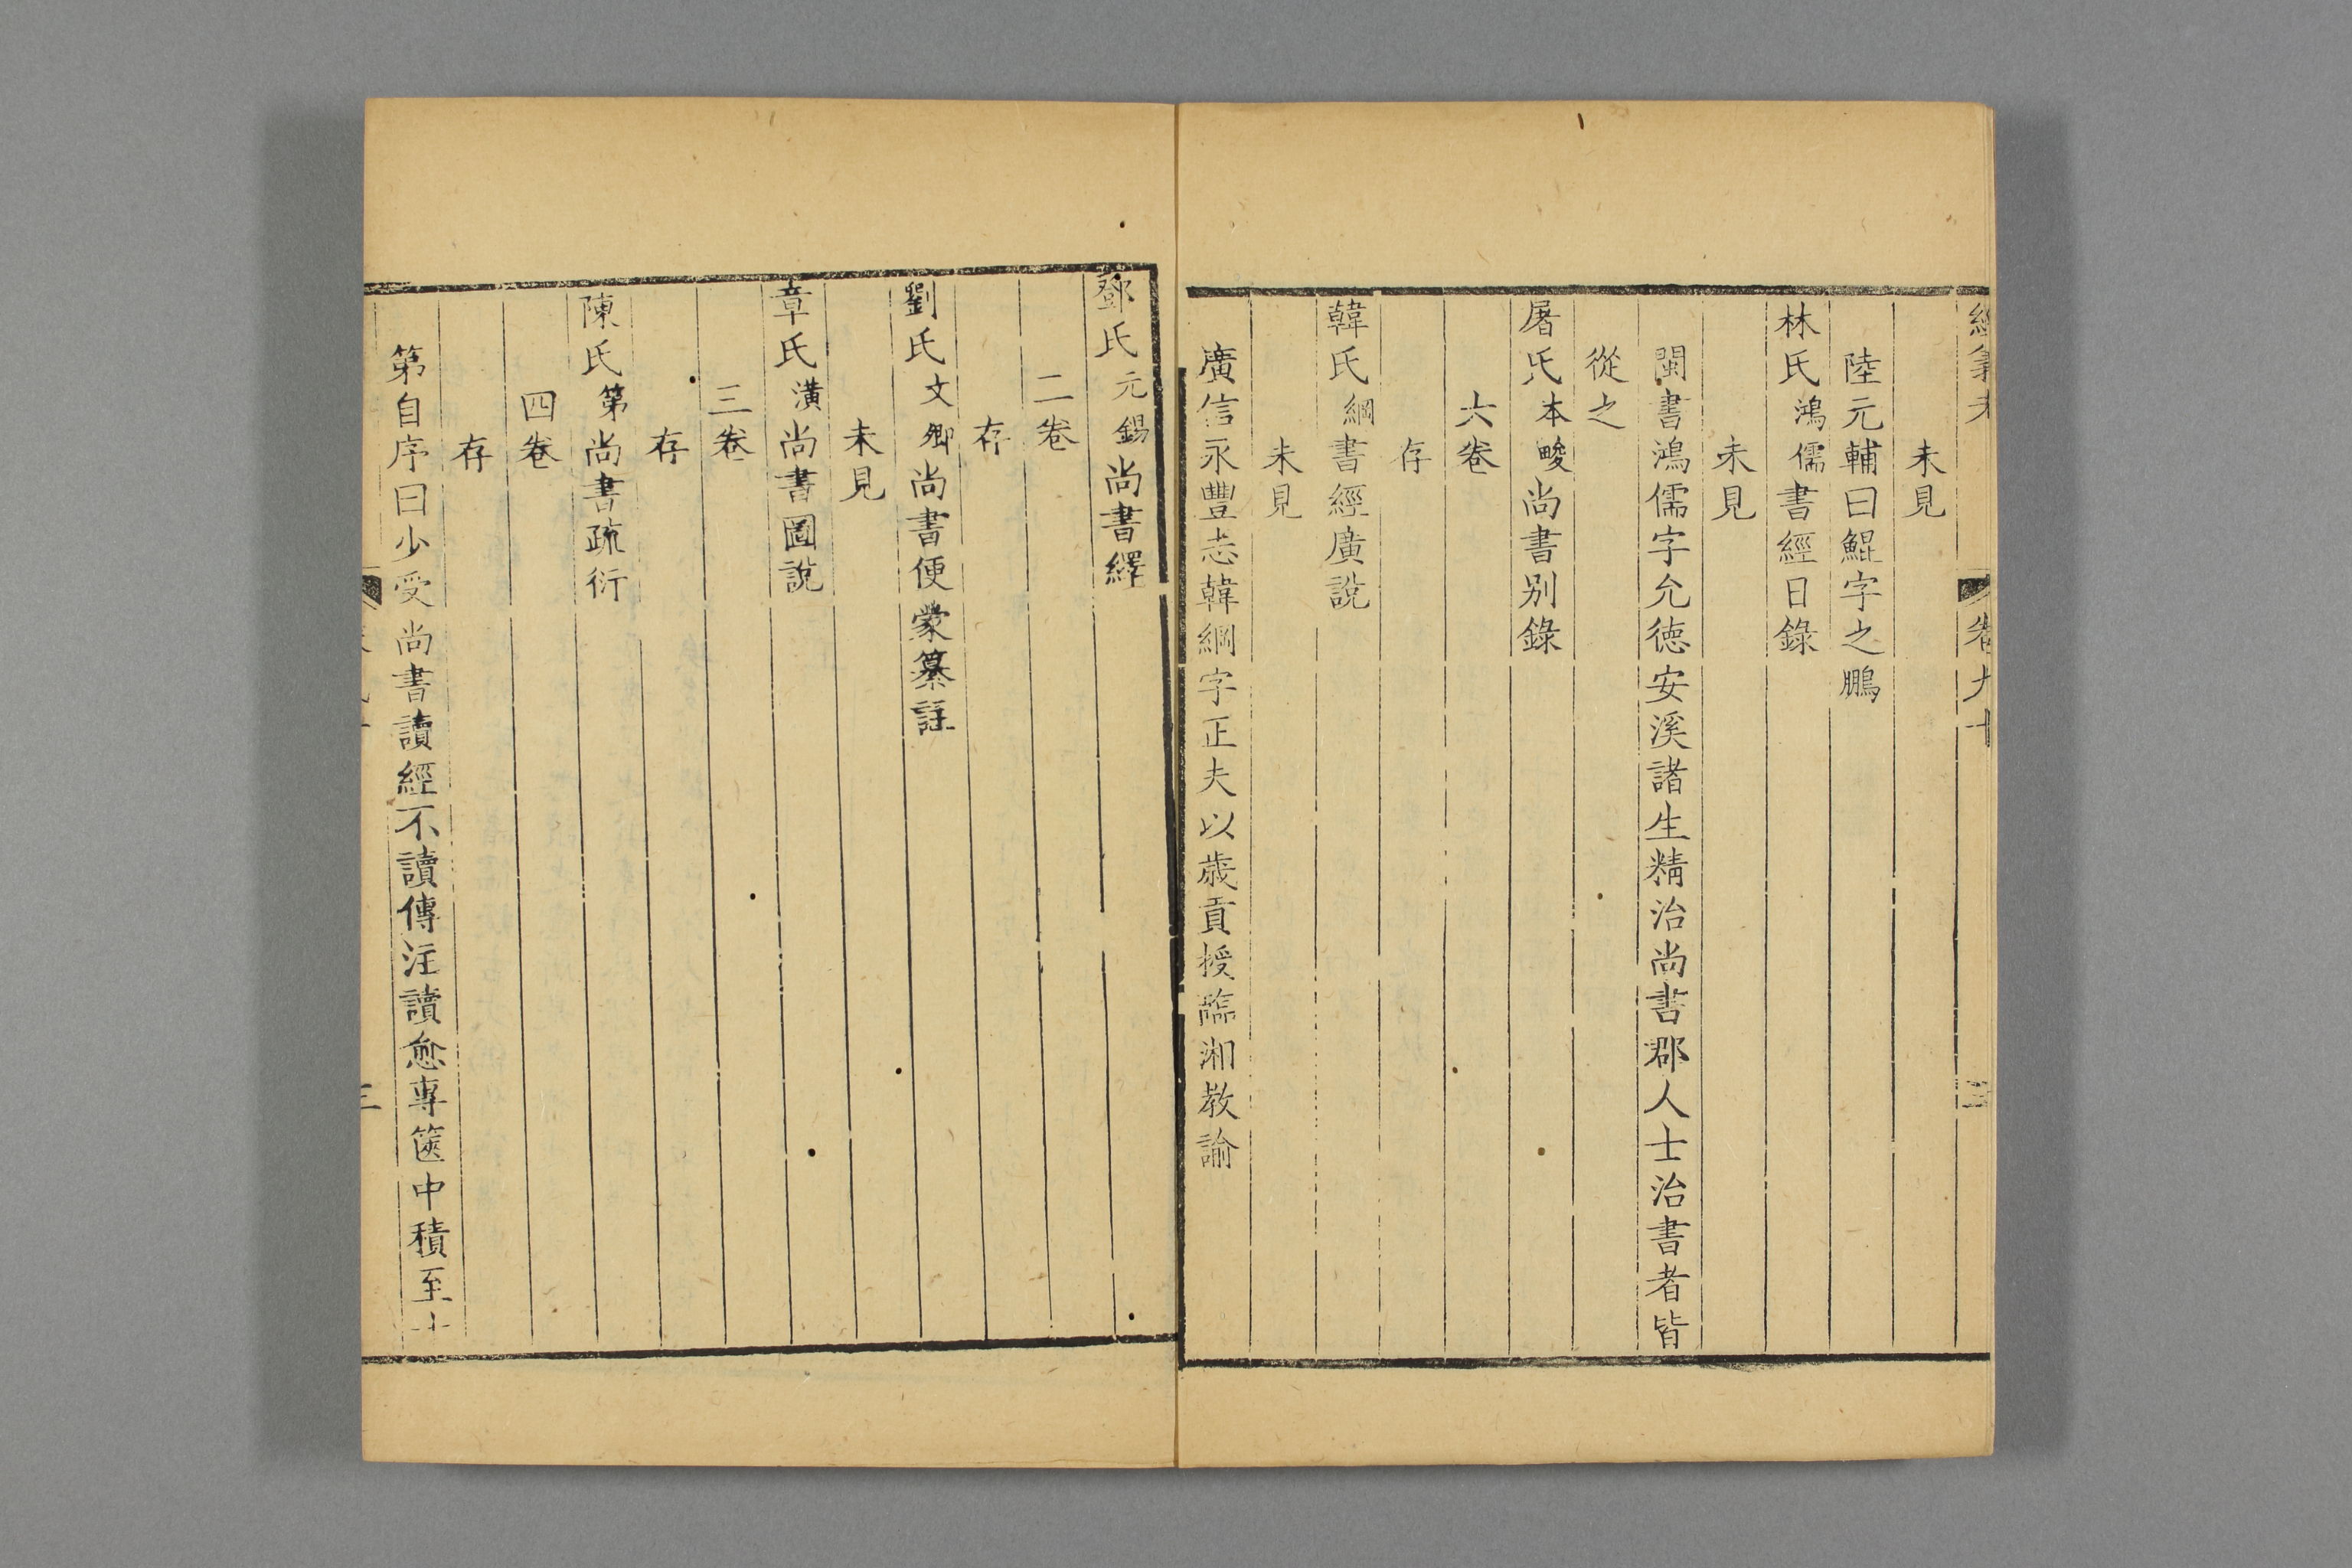 經義考 卷九十 三
未見
陸元輔曰鯤字之鵬
林氏鴻儒書經日錄
未見
閩書鴻儒字允徳安溪諸生精治尚書郡人士治書者皆
從之
屠氏本畯尚書别錄
六卷
存
韓氏綱書經廣說
未見
廣信永豐志韓綱字正夫以歲貢授臨湘教諭
鄧氏元錫尚書繹
二卷
存
劉氏文卿尚書便蒙纂註
未見
章氏潢尚書圖說
三卷
存
陳氏第尚書疏衍
四卷
存
第自序曰少受尚書讀經不讀傳注讀愈專篋中積至十
三